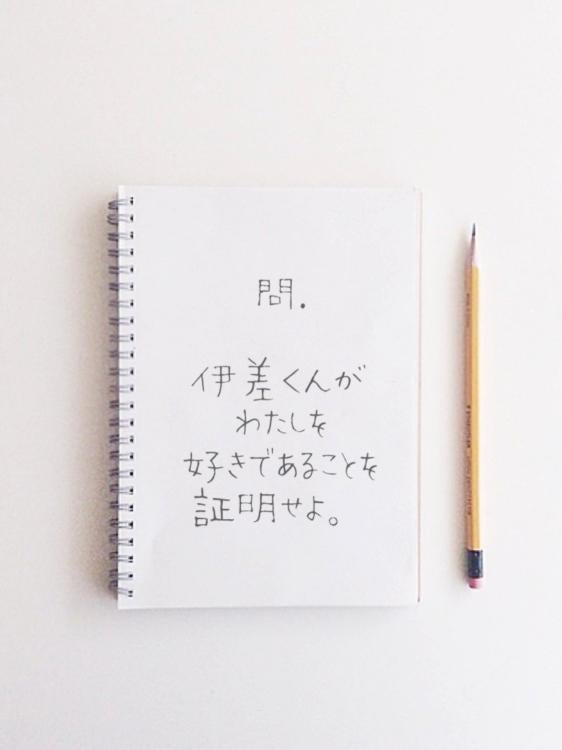 問.
伊差くんが
わたしを
好きであることを
証明せよ。